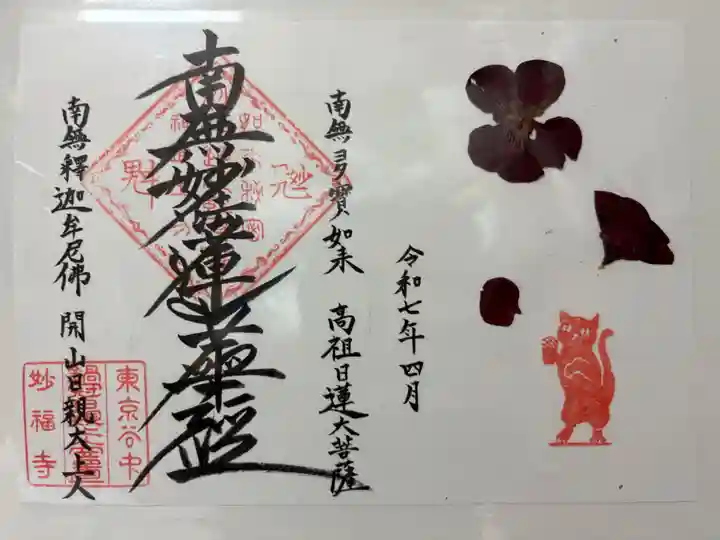 令和七年四月
南無多寶如来 高祖日蓮大菩薩
南無妙法蓮華経
南無釋迦牟尼佛 開山日親大上人
東京谷中
妙福寺